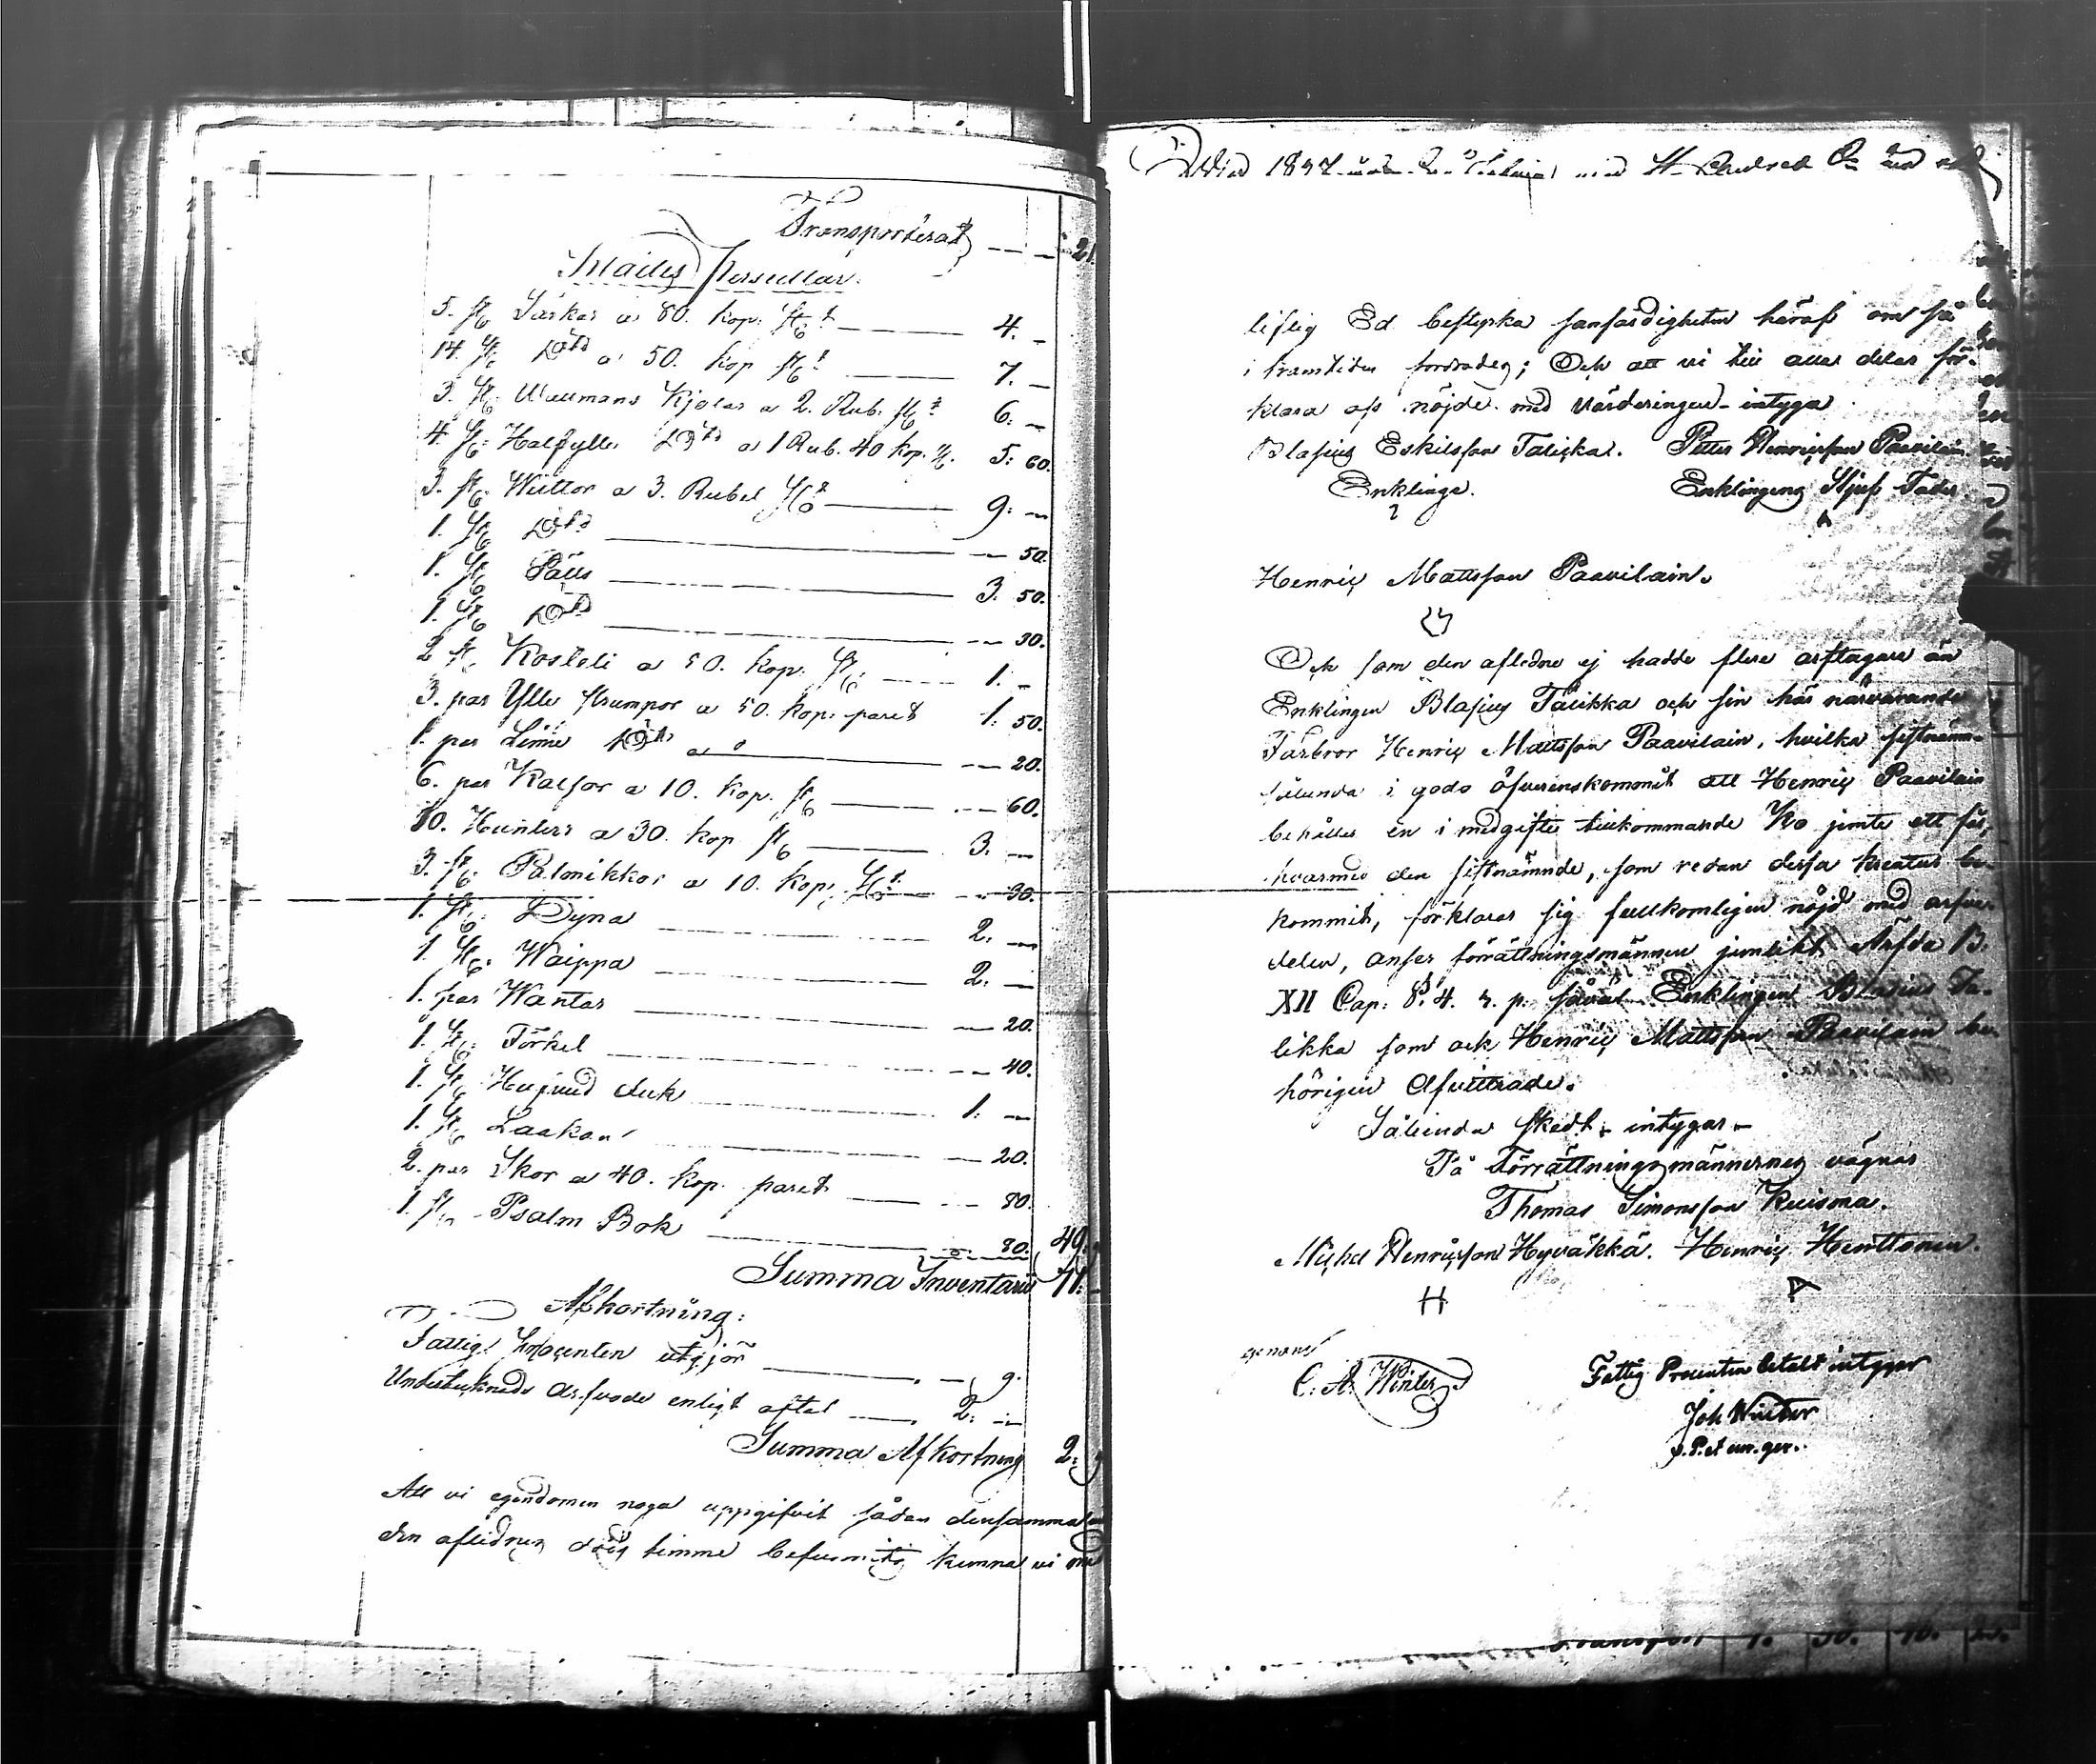 Transporterat — — 21.
Kläder Persedlar.
5. st Särkar a 80. kop. st — 4. —
14. st Dito a 50. kop st — 7. —
3. st Wallmans Kjolar a 2. Rub. st 6: —
4. st: Halfylle Dito a 1 Rub. 40 kop. st. 5: 60.
3. st. Wüttor a 3. Rubel st — 9: —
1. st Dito — — 50.
1. st Päls — 3. 50.
1. st Dito — — 30.
2 st. Kosteli a 50. kop. st — 1. —
3. par Ylle strumpor a 50. kop. paret 1. 50.
1. par Linne Dito a — — 20.
6. par Kalsor a 10. kop. st — — 60.
10. Hunters a 30. kop st — 3. —
3. st. Palmikkor a 10. kop. st — — 30.
1. st. Dyna — 2. —
1. st. Waippa — 2. —
1. par Wantar — — 20.
1. st. Förkel — — 40.
1. st Hufvud duk — 1: —
1. st Laakan — — 20.
2. par Skor a 40. kop. paret — — 80.
1. st Psalm Bok — — 80. 49.
Summa Inventarii 71:
Afkortning:
Fattig Procenten utgjör — — 9.
Undertecknads arfvode enligt aftal — 2: —
Summa Afkortning 2: 9
Att vi egendomen noga uppgifvit sådan densamma
den aflidnes döds timme befunnits kunna vi med
1897
liflig Ed bestyrka sanfärdigheten häraf om så
i framtiden fordrades; Och att vi till alla delar för-
klara oss nöjde med värderingen intyga
Blasius Eskilsson Talikka. Petter Henricsson Paavilain
Enkling. Enklingens Stjuf Fader.
Henric Mattsson Paavilain.
Och som den aflidne ej hadde flere arftagare än
Enklingen Blasius Talikka och sin här närvarande
Farbror Henric Mattsson Paavilain, hvilka sistnämn-
sålunda i godo öfverenskommit att Henric Paavilain
behåller en i medgifte tillkommande Ko jemte ett får,
hvarmed den sistnämnde, som redan dessa kreatur be-
kommit, förklarar sig fullkomligen nöjd med arfve-
delen, anser förrättningsmännen jemlikt Ärfda B.
XII Cap: §. 4. r. p: såväl Enklingen Blasius Ta-
likka som ock Henric Mattsson Paavilain be-
hörigen Afvittrade.
Sålunda skedt, intygar
På Förrättningsmännernes vägnar
Thomas Simonsson Kuisma.
Michel Henricsson Hyväkkä. Henric Henttonen
H A
genom
C. A. Winter Fattig Procenten betalt intygar
Joh Winter
v. P. et